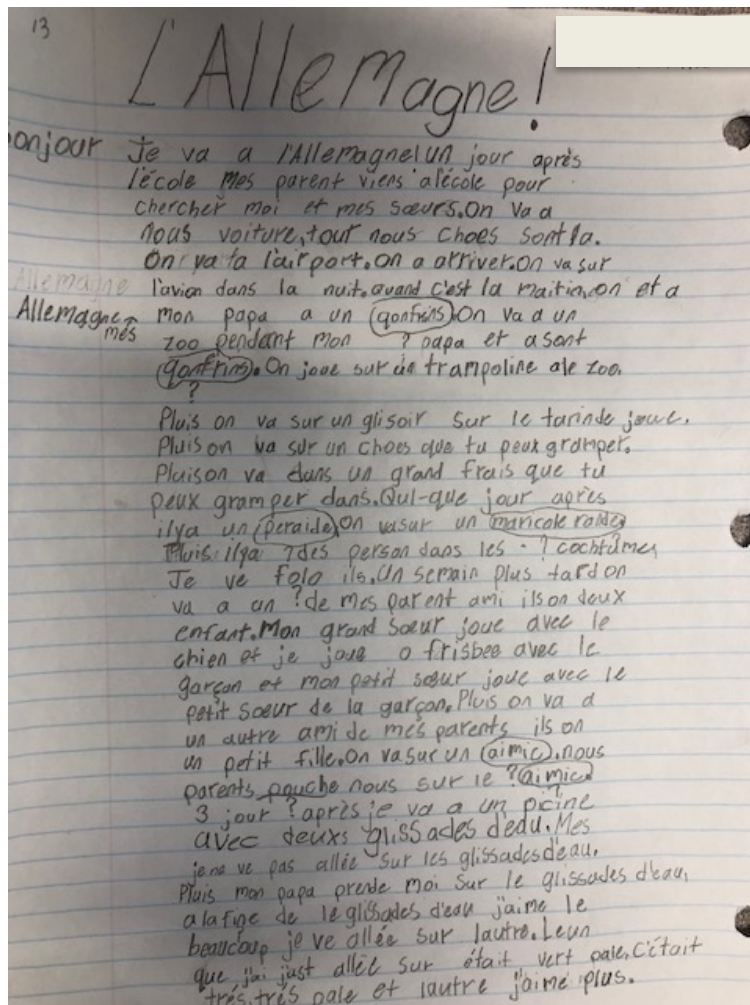 13
L'Allemagne!
Bonjour Je va a l'Allemagne! Un jour après
l'école mes parent viens a l'école pour
chercher moi et mes sœurs. On va a
nous voiture, tout nous choes sont la.
On va ta l'airport. On a arriver. On va sur
Allemagne l'avion dans la nuit. quand c'est la maitia, on et a
Allemagne mes mon papa a un qonfrins. On va a un
zoo pendant mon ? papa et a sont
qonfrins. On joue sur un trampoline a le zoo.
?
Pluis on va sur un glisoir sur le tarinde joue.
Pluis on va sur un choes que tu peux gramper.
Pluis on va dans un grand frais que tu
peux gramper dans. Qul-que jour après
il ya un peraide. On va sur un maricole raide
Pluis il ya ? des person dans les ? cochtumes
Je ve folo ils. Un semain plus tard on
va a un ? de mes parent ami ils on deux
enfant. Mon grand sœur joue avec le
chien et je joue o frisbee avec le
garçon et mon petit sœur joue avec le
petit soeur de la garçon. Pluis on va a
un autre ami de mes parents ils on
un petit fille. On va sur un aimic. nous
parents pouche nous sur le ? aimic.
3 jour ? après je va a un picine
avec deuxs glissades d'eau. Mes
je ne ve pas allée sur les glissades d'eau.
Pluis mon papa prende moi sur le glissades d'eau,
a la fine de le glissades d'eau j'aime le
beaucoup je ve allée sur lautre. Le un
que j'ai just allée sur était vert pale. C'était
trés, trés pale et lautre j'aime plus.